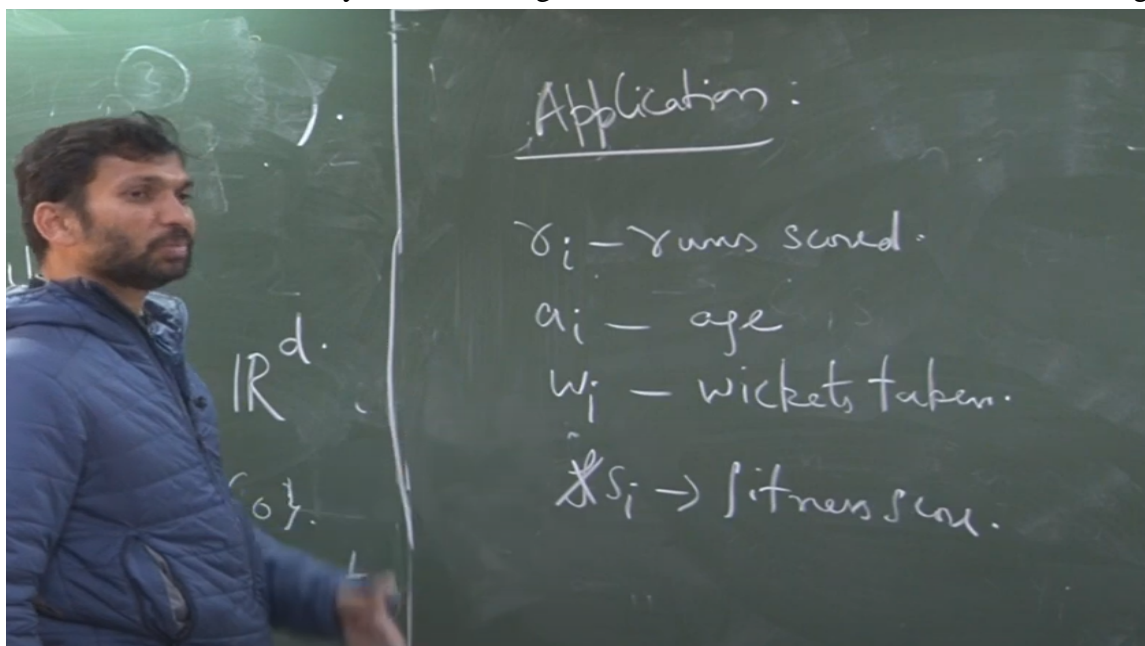 ).
ℝᵈ.
{0}.
Application:
rᵢ – runs scored.
aᵢ – age
wᵢ – wickets taken.
sᵢ → fitness score.